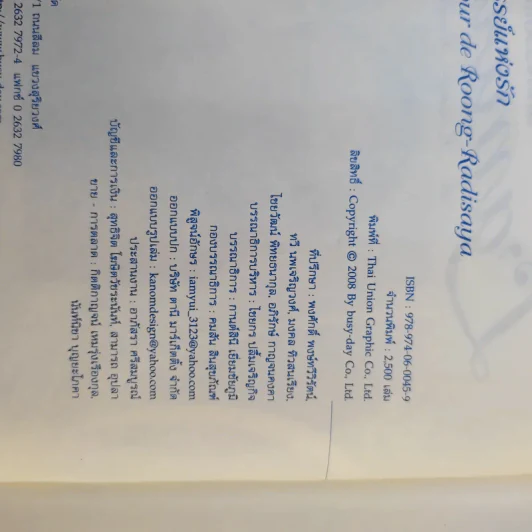 รย์แห่งรัก
ur de Roong-Radisaya
ISBN : 978-974-06-0045-9
จำนวนพิมพ์ : 2,500 เล่ม
พิมพ์ที่ : Thai Union Graphic Co., Ltd.
ลิขสิทธิ์ : Copyright © 2008 By busy-day Co., Ltd.
ที่ปรึกษา : พงศักดิ์ พงษ์ทวีวิรัตน์,
ทวี นพเจริญวงศ์, มงคล ทิวสนเรียง,
ไชยวัฒน์ พิทยธนากุล, อภิรักษ์ กาญจนคงคา
บรรณาธิการบริหาร : ไชยกร ปลื้มเจริญกิจ
บรรณาธิการ : กานต์สินี
กองบรรณาธิการ : คมสัน สินสุขภัณฑ์
พิสูจน์อักษร : iamyui_3123@yahoo.com
ออกแบบปก : บริษัท ดานี มาร์เก็ตติ้ง จำกัด
ออกแบบรูปเล่ม : kanomdesign@yahoo.com
ประสานงาน : อาภัสรา ศรีสมบูรณ์
บัญชีและการเงิน : สุทธิจิต โฆษิตวัชระนันท์, สามารถ อุปลา
ขาย - การตลาด : กิตติกาญจน์ เหมรุ่งเรืองกุล,
นันท์นิชา บุญยะโภคา
ถนนสีลม แขวงสุริยวงศ์
2632 7972-4 แฟกซ์ 0 2632 7980